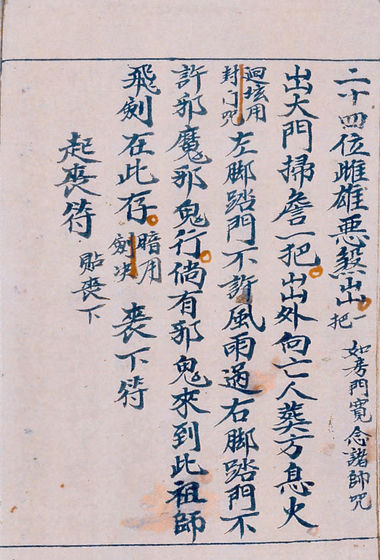 二十四位雌雄悪煞出 把 如房門寬念諸師咒
出大門掃詹一把出出外向亡人葵方息火
迴垓用
封门咒 左脚踏門不許風雨過右脚踏門不
許邪魔邪鬼行倘有邪鬼來到此祖師
飛劍在此存 暗用
劍决 丧下符
起丧符 貼丧下